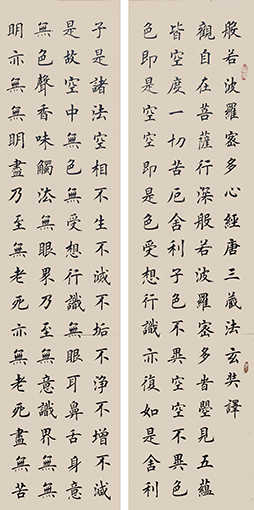 般若波羅蜜多心經唐三藏法玄奘譯
觀自在菩薩行深般若波羅蜜多旹曌見五蘊
皆空度一切苦厄舍利子色不異空空不異色
色即是空空即是色受想行識亦復如是舍利
子是諸法空相不生不滅不垢不淨不增不減
是故空中無色無受想行識無眼耳鼻舌身意
無色聲香味觸法無眼界乃至無意識界無無
明亦無無明盡乃至無老死亦無老死盡無苦